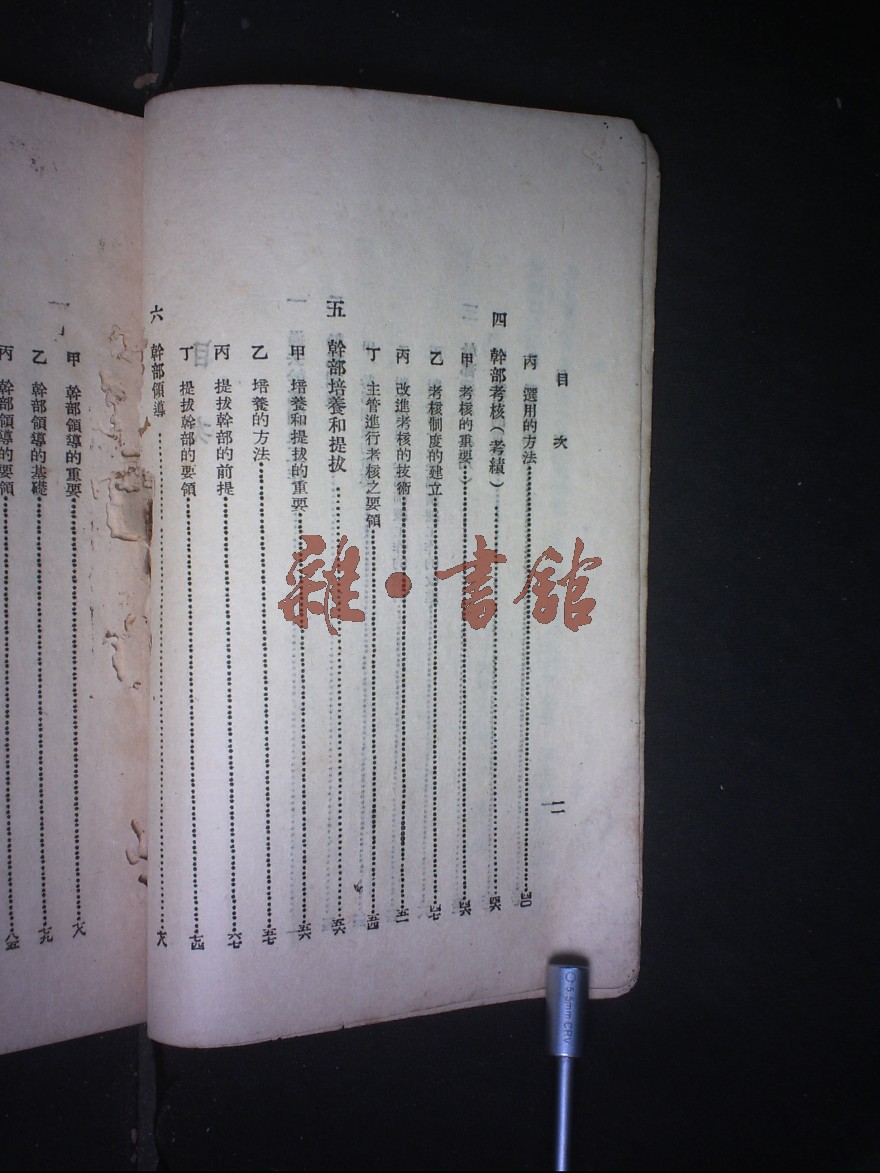 目次
二
丙 選用的方法 四〇
四 幹部考核(考績) 四六
甲 考核的重要 四六
乙 考核制度的建立 四七
丙 改進考核的技術 五一
丁 主管進行考核之要領 五四
五 幹部培養和提拔 五六
甲 培養和提拔的重要 五六
乙 培養的方法 五七
丙 提拔幹部的前提 六七
丁 提拔幹部的要領 七四
六 幹部領導
甲 幹部領導的重要
乙 幹部領導的基礎 七九
丙 幹部領導的要領 八五
雜·書館
5.5mm CRV